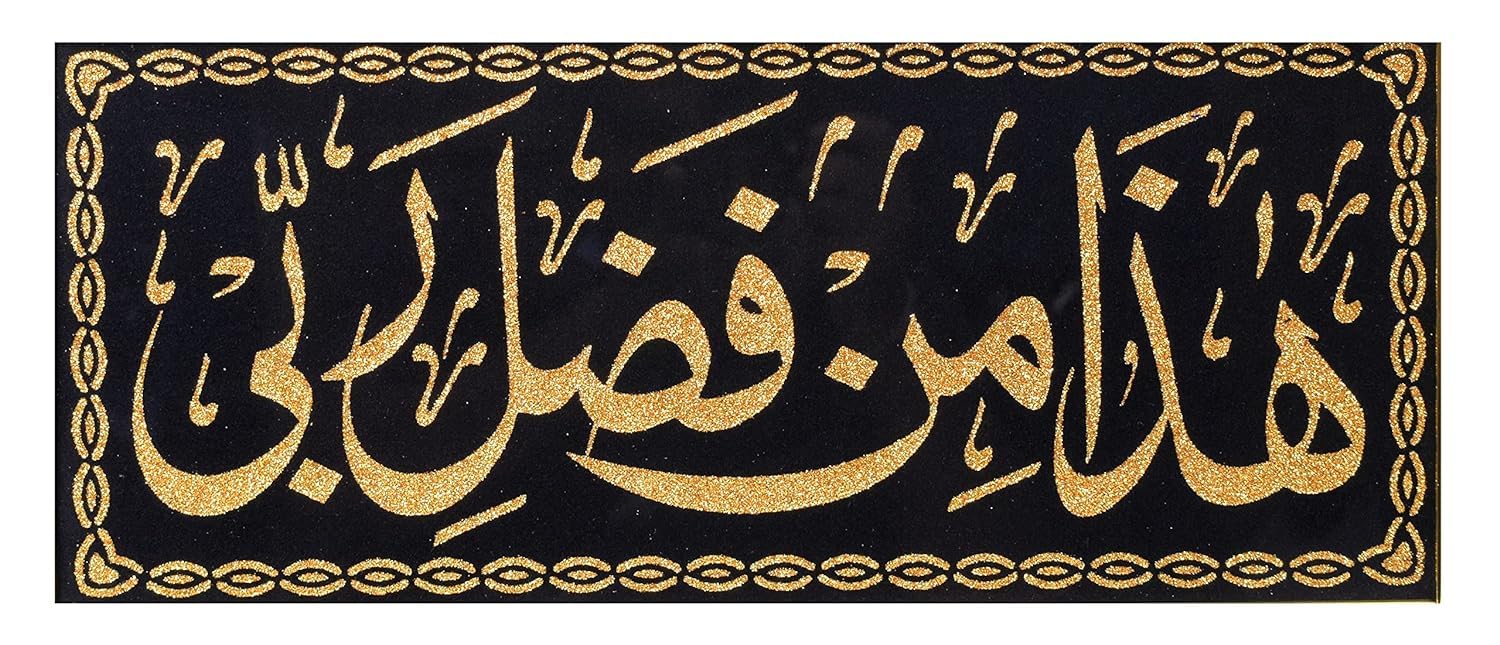 هٰذَا مِنْ فَضْلِ رَبِّی